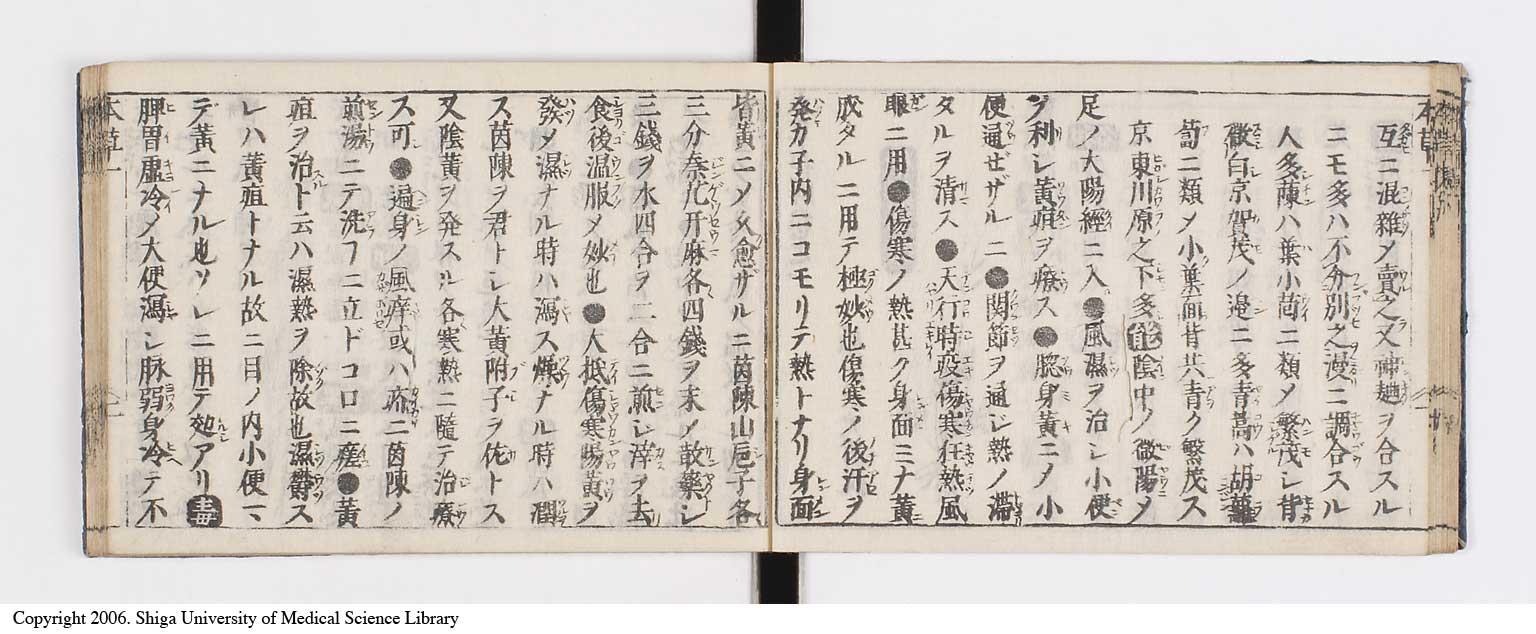 互ニ混雜メ賣之又神麯ヲ合スル
ニモ多ハ不分別之漫ニ調合スル
人多蔯ハ葉小茼ニ類メ繁茂シ背
微白京賀茂ノ邉ニ多青蒿ハ胡蘿
蔔ニ類メ小葉面背共青ク繁茂ス
京東川原之下多能陰中ノ微陽メ
足ノ大陽經ニ入●風濕ヲ治シ小便
ヲ利シ黄疸ヲ療ス●腮身黄ニメ小
便通ゼザルニ●関節ヲ通シ熱ノ滞
タルヲ清ス●天行時疫傷寒狂熱風
眼ニ用●傷寒ノ熱甚ク身面ミナ黄
成タルニ用テ極妙也傷寒ノ後汗ヲ
発カ子内ニコモリテ熱トナリ身面
皆黄ニメ久愈ザルニ茵陳山巵子各
三分秦艽升麻各四錢ヲ末メ散藥シ
三錢ヲ水四合ヲ二合ニ煎シ滓ヲ去
食後温服メ妙也●大抵傷寒陽黄ヲ
發メ濕ナル時ハ瀉ス燥ナル時ハ潤
ス茵陳ヲ君トシ大黄附子ヲ佐トス
又陰黄ヲ発スル各寒熱ニ隨テ治療
ス可●遍身ノ風痒或ハ疥ニ茵陳ノ
煎湯ニテ洗フニ立ドコロニ瘥●黄
疸ヲ治ト云ハ濕熱ヲ除故也濕欝ス
レハ黄疸トナル故ニ目ノ内小便マ
デ黄ニナル也ソレニ用テ効アリ毒
脾胃虚冷メ大便瀉シ脉弱身冷テ不
本草一
Copyright 2006. Shiga University of Medical Science Library